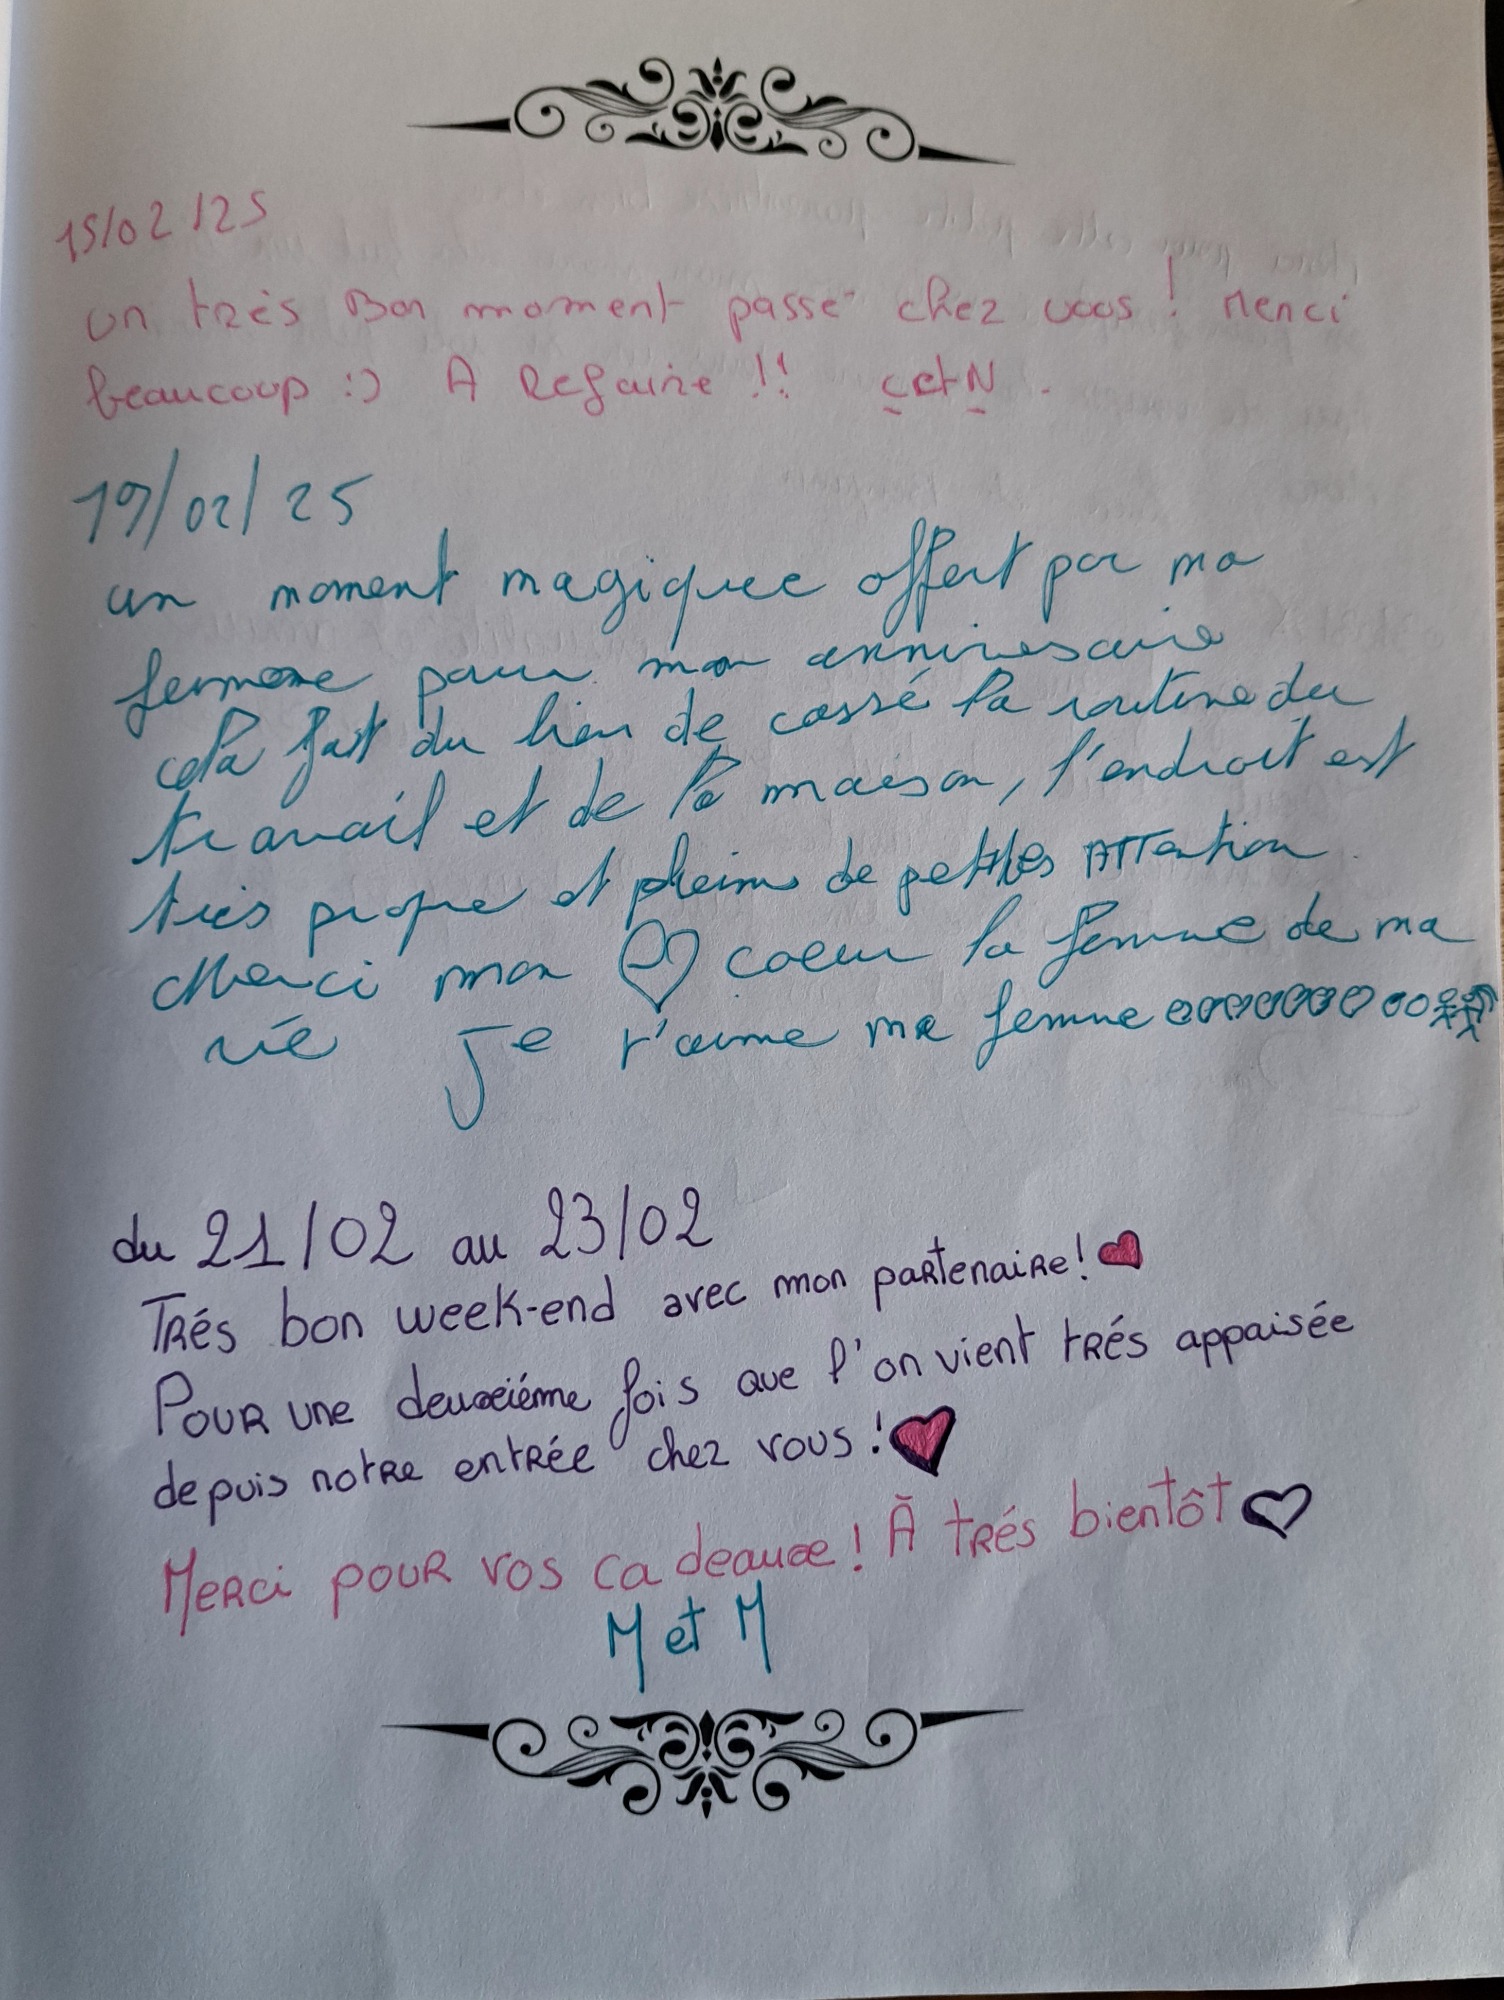 15/02/25
un très Bon moment passé chez vous ! Merci
beaucoup :) A Refaire !! C et N .
19/02/25
un moment magique offert par ma
femme pour mon annivesaire
cela fait du bien de cassé la routine du
travail et de la maison, l'endroit est
très propre et pleins de petites ATTention
Merci mon ♡ coeur la femme de ma
vie Je t'aime ma femme
du 21/02 au 23/02
TRés bon week-end avec mon partenaire! ♥
Pour une deuxiéme fois que l'on vient trés appaisée
depuis notre entrée chez vous ! ♥
Merci pour vos cadeaux ! À trés bientôt ♡
M et M